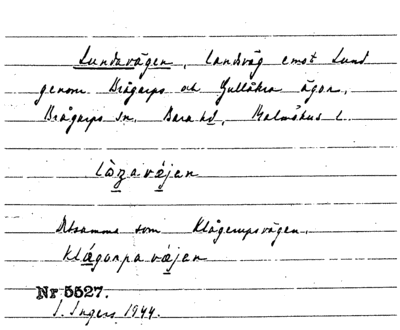 Lundavägen, landsväg emot Lund
genom Brågarps och Gullåkra ägor.
Brågarps sn. Bara hd, Malmöhus l.
Detsamma som Klågerupsvägen.
Nr 5527.
I. Ingers 1944.